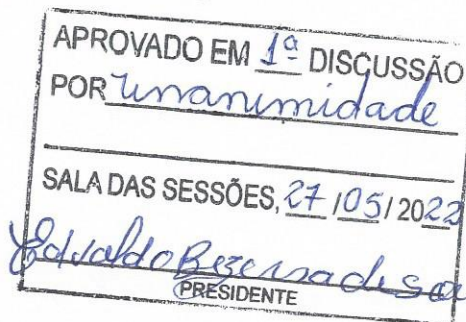 APROVADO EM 1ª DISCUSSÃO
POR unanimidade
SALA DAS SESSÕES, 27 / 05 / 2022
Edvaldo Bezerra de Sou
PRESIDENTE